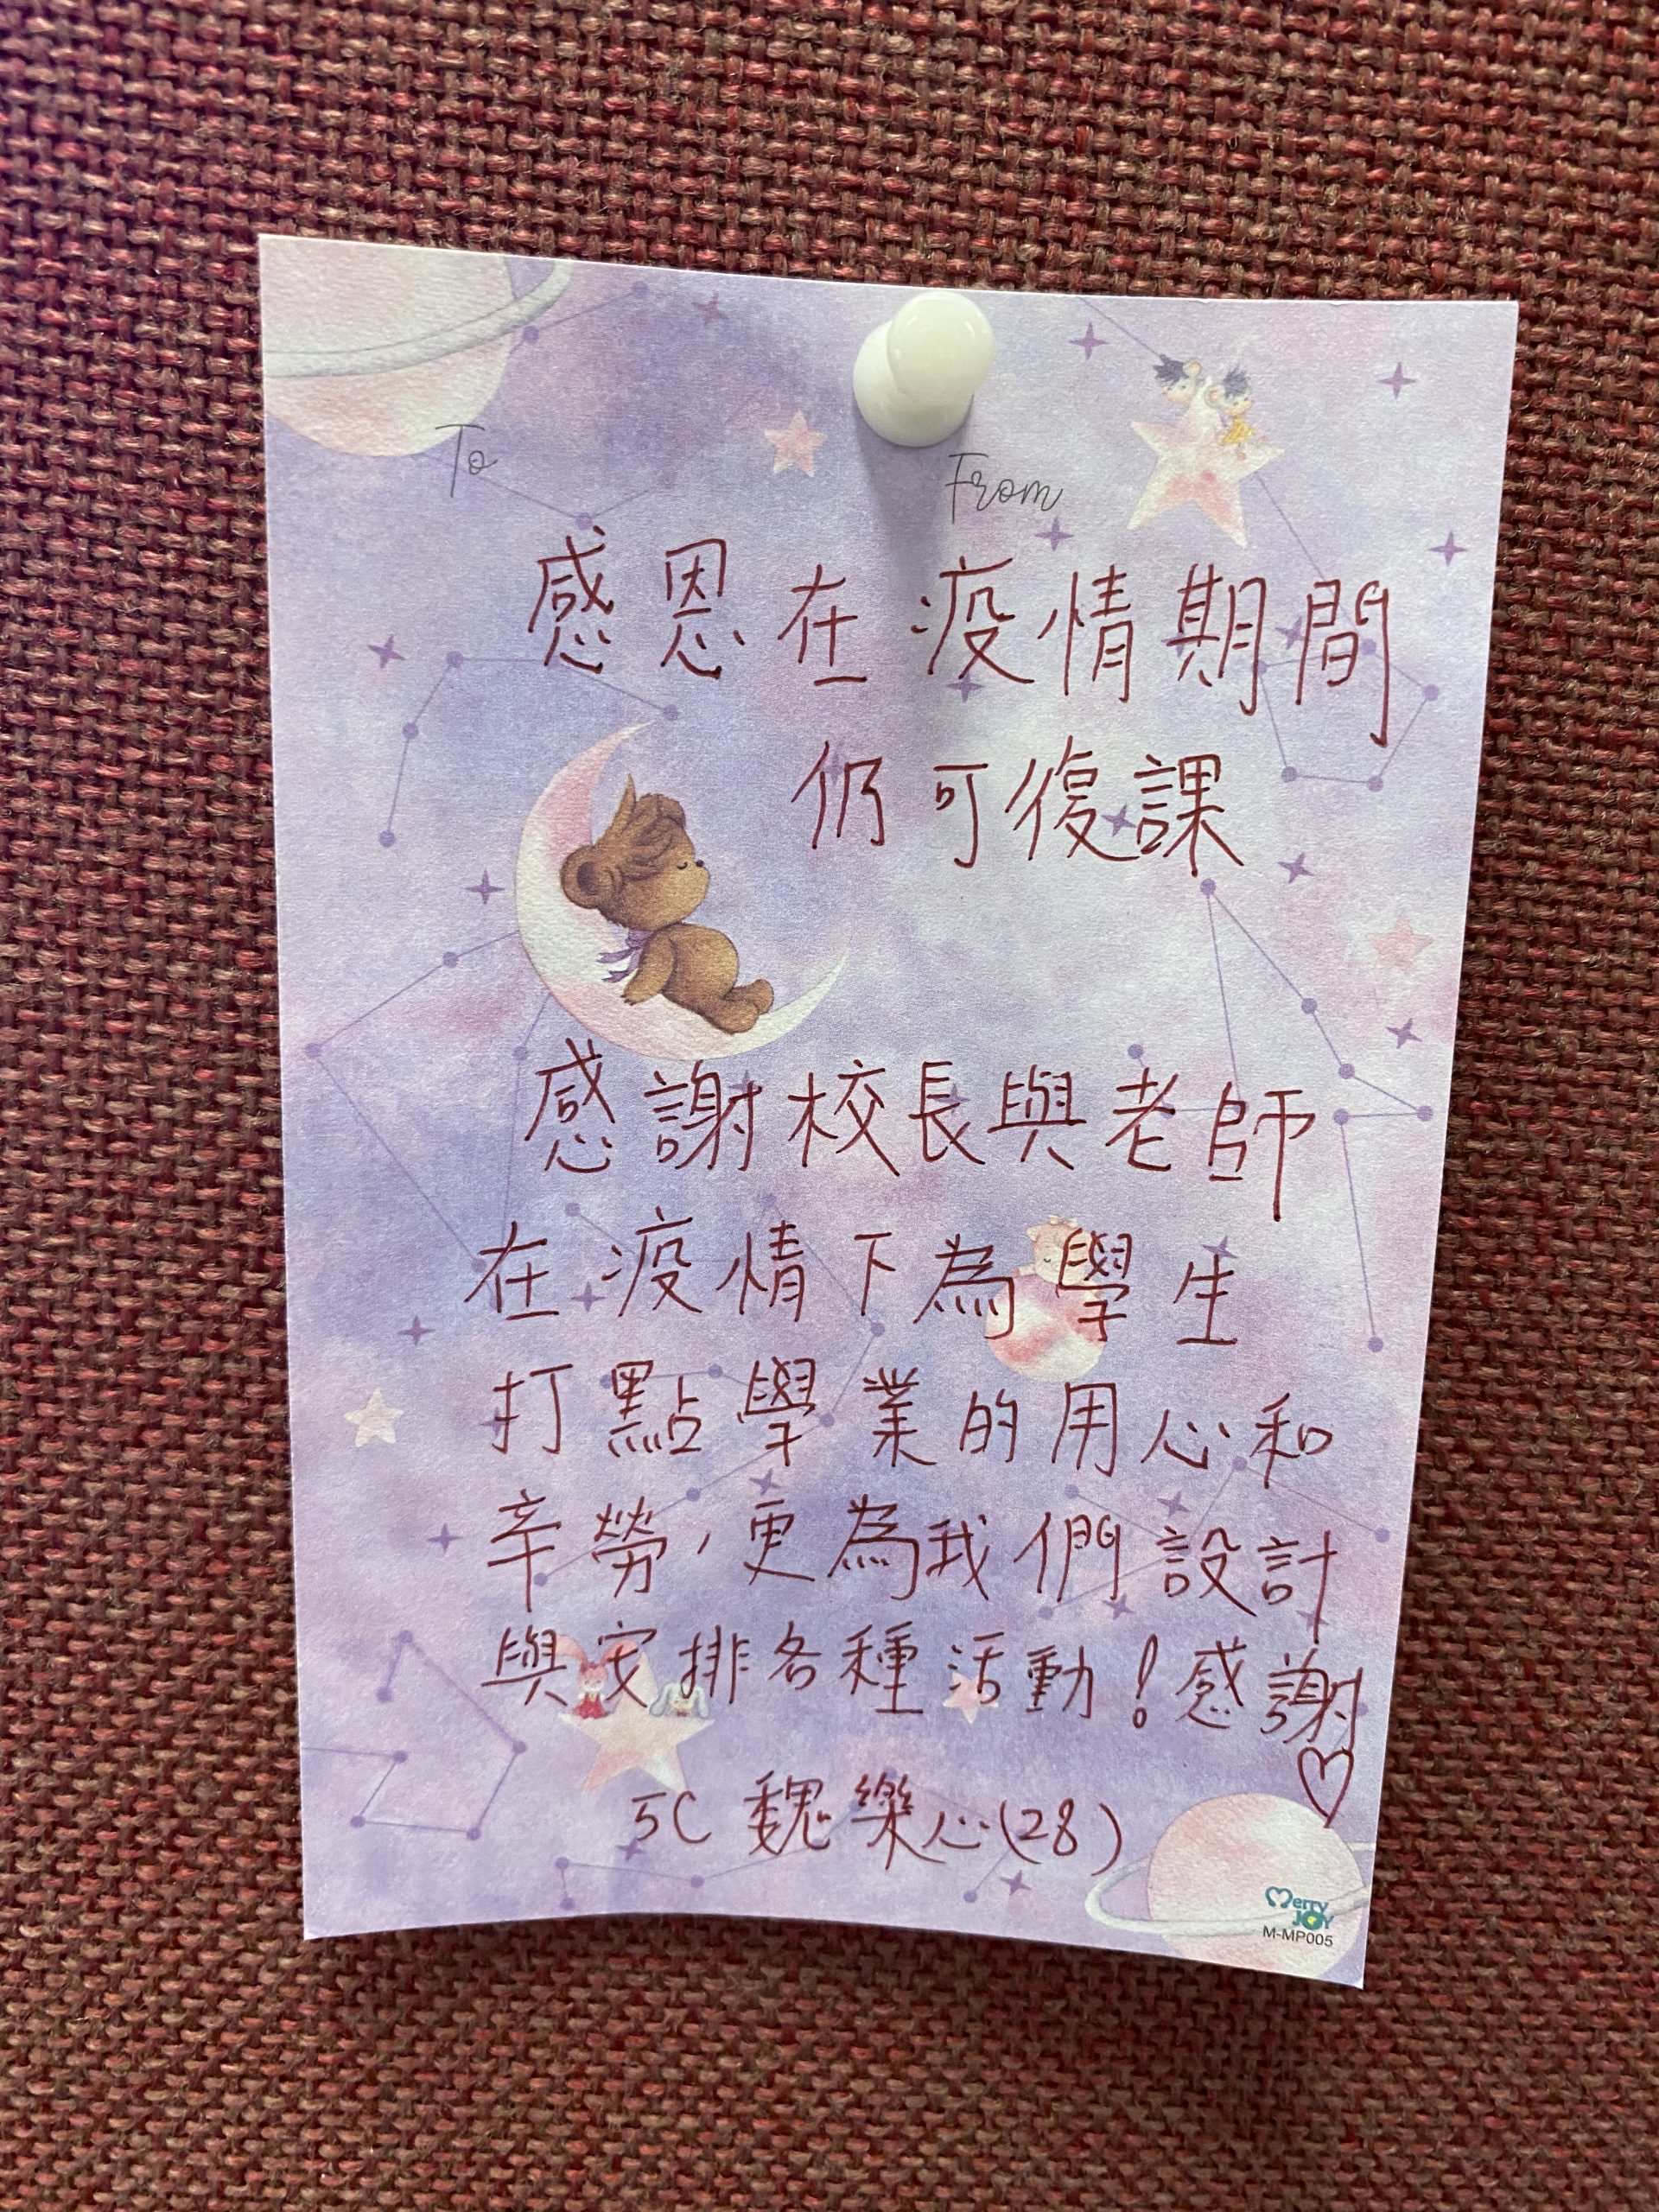 To
From
感恩在疫情期間
仍可復課
感謝校長與老師
在疫情下為學生
打點學業的用心和
辛勞，更為我們設計
與安排各種活動！感謝
♡
5C 魏樂心(28)
Merry
JOY
M-MP005